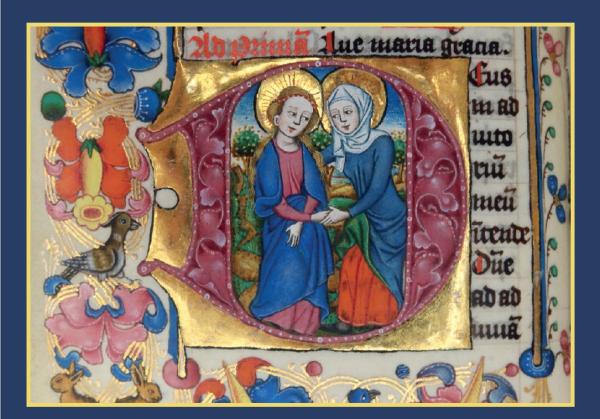 Ad primã Aue maria gracia.
DEus
in ad
iuto
riũ
meũ
ĩtende
Dñe
ad ad
iuuã